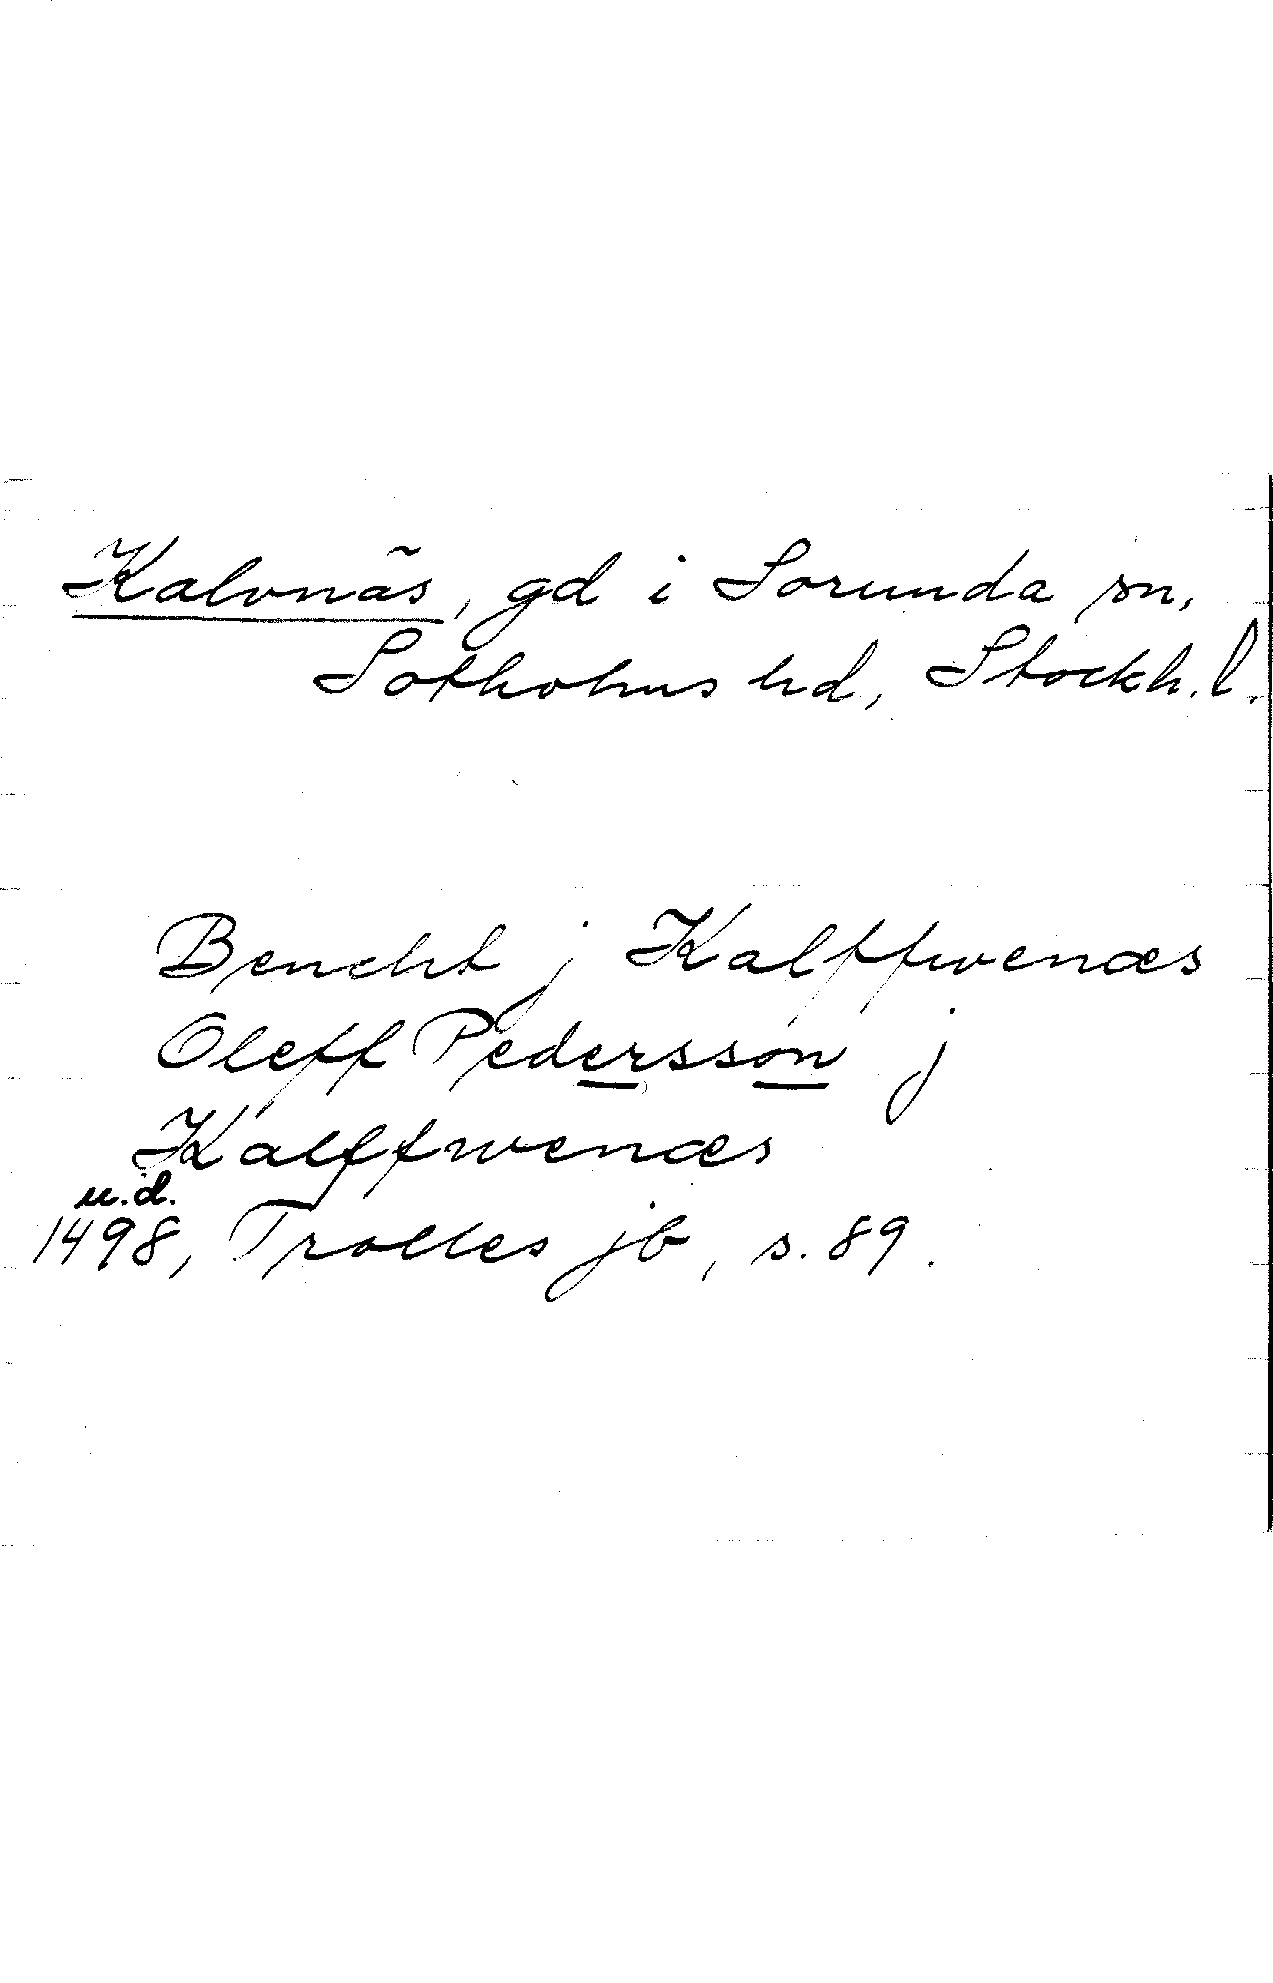 Kalvnäs, gd i Sorunda sn,
Sotholms hd, Stockh. l.
Bencht j Kalffwenæs
Oleff Pedersson j
Kalffwenæs
u.d.
1498, Trolles jb, s. 89.